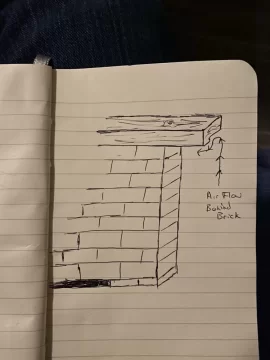 Air Flow
Behind
Brick